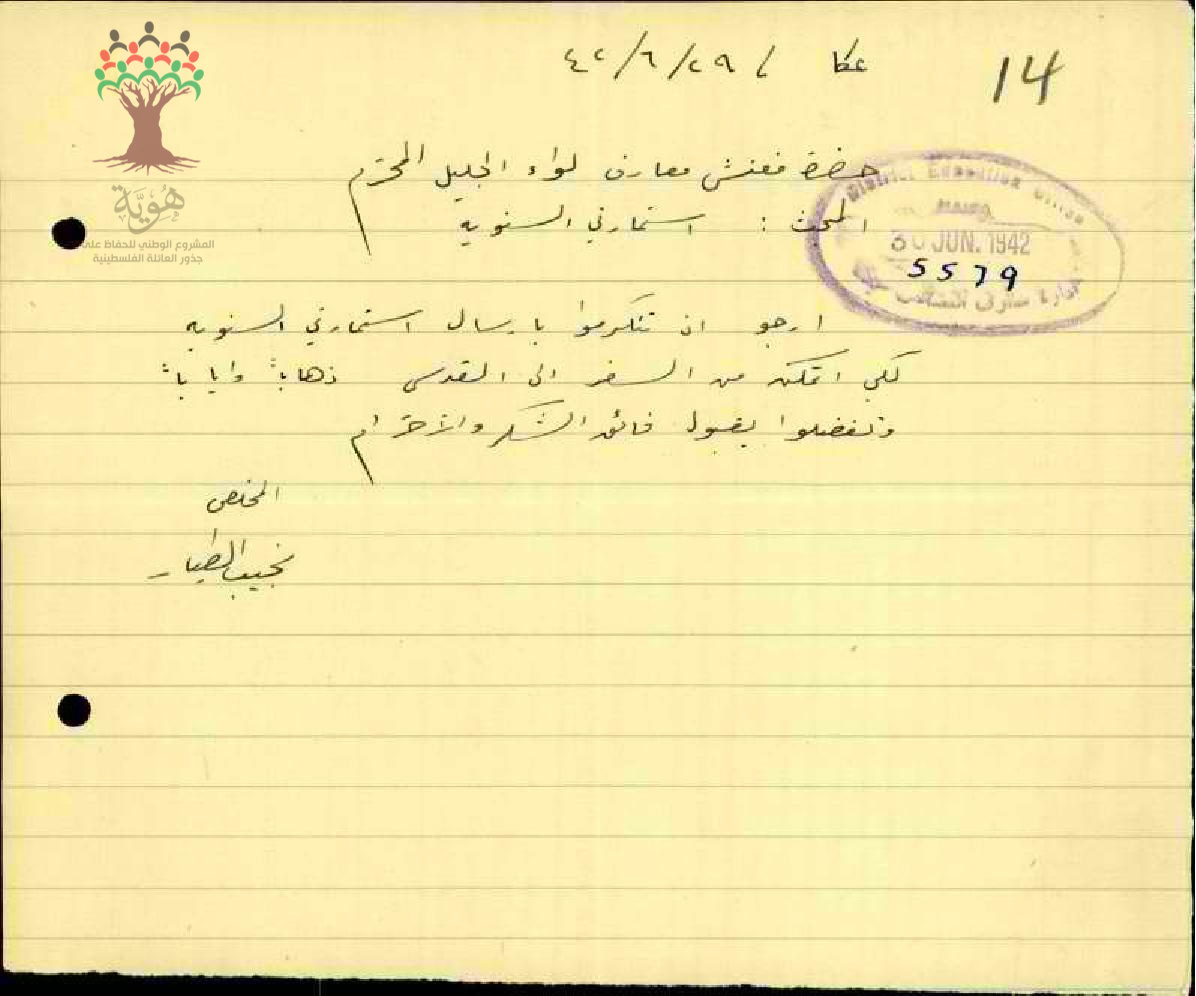 14
عكا / ٢٩/٦/٤٢
حضرة مفتش معارف لواء الجليل المحترم
المبحث : استمارتي السنوية
District Education Office
30 JUN. 1942
5579
ادارة معارف
ارجو ان تتكرموا بارسال استمارتي السنويه
لكي اتمكن من السفر الى القدس ذهاباً واياباً
وتفضلوا بقبول فائق الشكر والاحترام
المخلص
نجيب الطيار
هُوِيَّة
المشروع الوطني للحفاظ على
جذور العائلة الفلسطينية